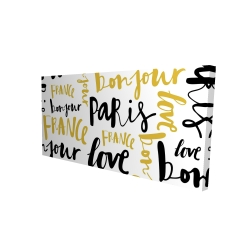 bonjour
your
FRANCE
bonjour
PARIS
love
FRANCE
FRANCE
bon
love
jour
love
bon